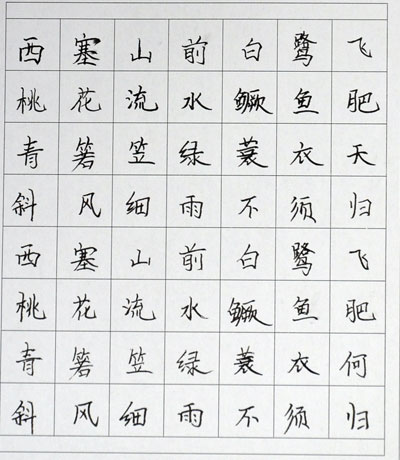 西塞山前白鹭飞
桃花流水鳜鱼肥
青箬笠绿蓑衣天
斜风细雨不须归
西塞山前白鹭飞
桃花流水鳜鱼肥
青箬笠绿蓑衣何
斜风细雨不须归